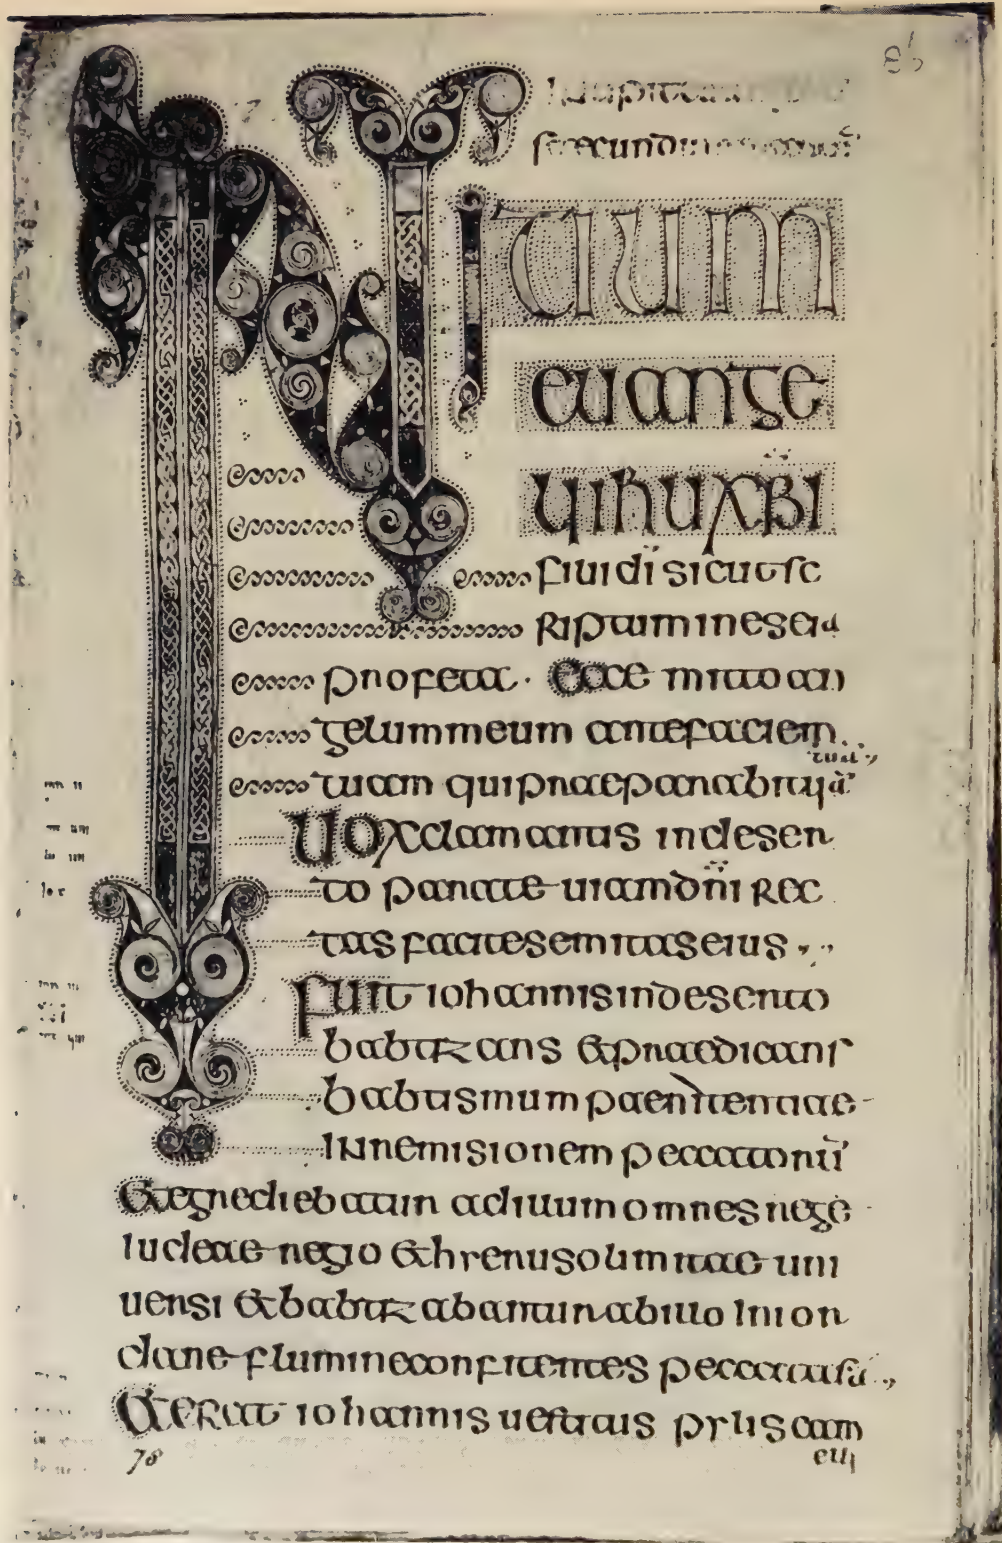 secundum
INITIUM
euange
lii ihu xpi
filii di sicut sc
riptum in eseia
profeta · Ecce mitto an
gelum meum ante faciem
tuam qui praeparabit uiā
tuā
Uox clamantis in deser
to parate uiam dn̄i rec
tas facite semitas eius
Fuit iohannis in deserto
babtizans & praedicans
babtismum paenitentiae
in remisionem peccatorū
Et egrediebatur ad illum omnes rege
iudeae regio & hierusolimitae uni
uersi & babtizabantur ab illo in ior
dane flumine confitentes peccata sua
Et erat iohannis uestitus pylis cam
eli
78